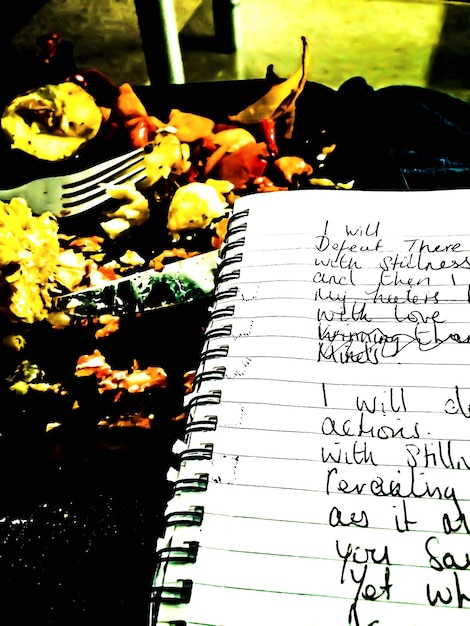 I will
Defeat There
with stillness
and then I
my haters
with love
Winning than
Minds
I will de
actions.
with stilln
revealing
as it
you Sa
Yet wh